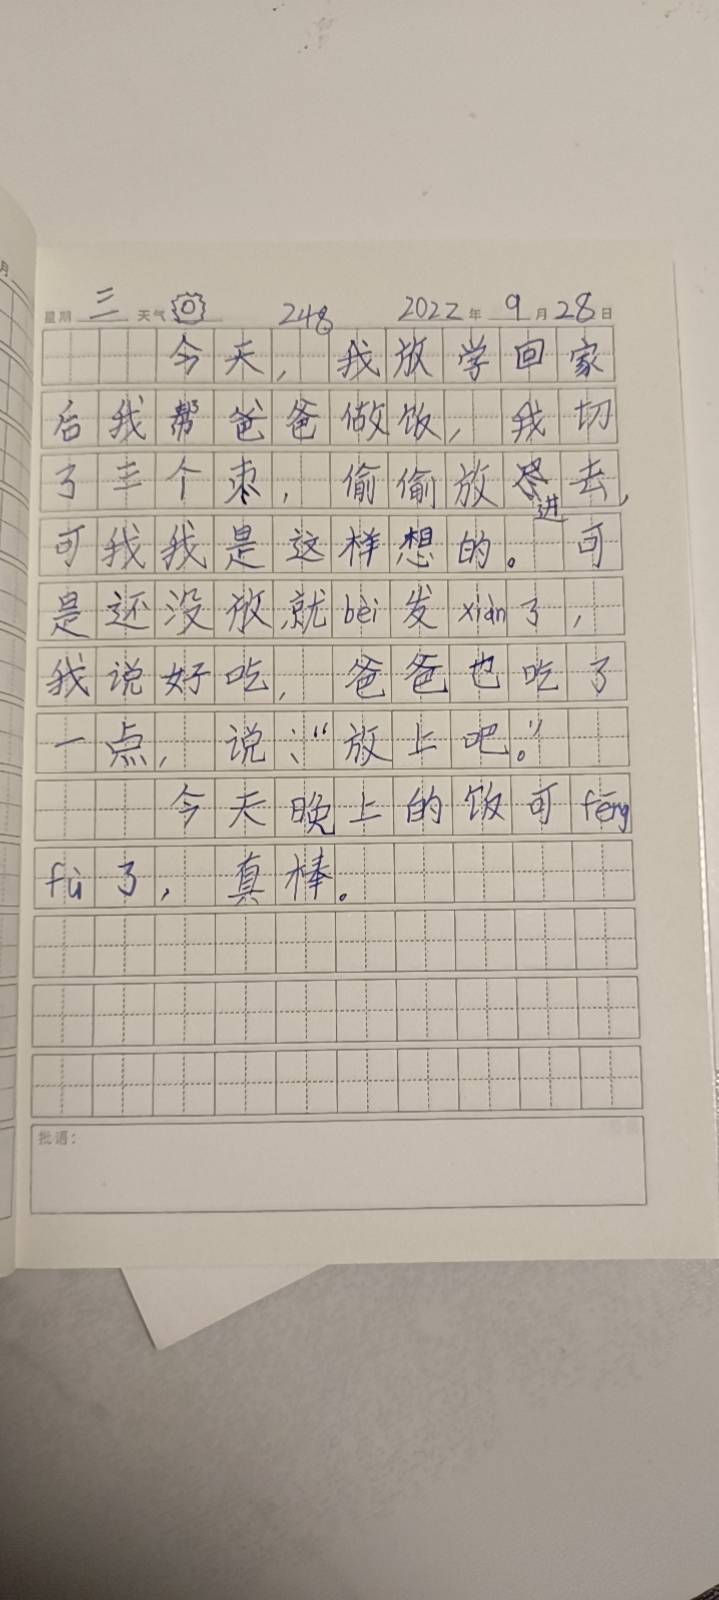 月
星期 三 天气 248 2022 年 9 月 28 日
今天，我放学回家
后我帮爸爸做饭，我切
了三个枣，偷偷放进去，
可我我是这样想的。可
是还没放，就bèi发xiàn了，
我说好吃，爸爸也吃了
一点，说：“放上吧。”
今天晚上的饭可fēng
fù了，真棒。
批语：